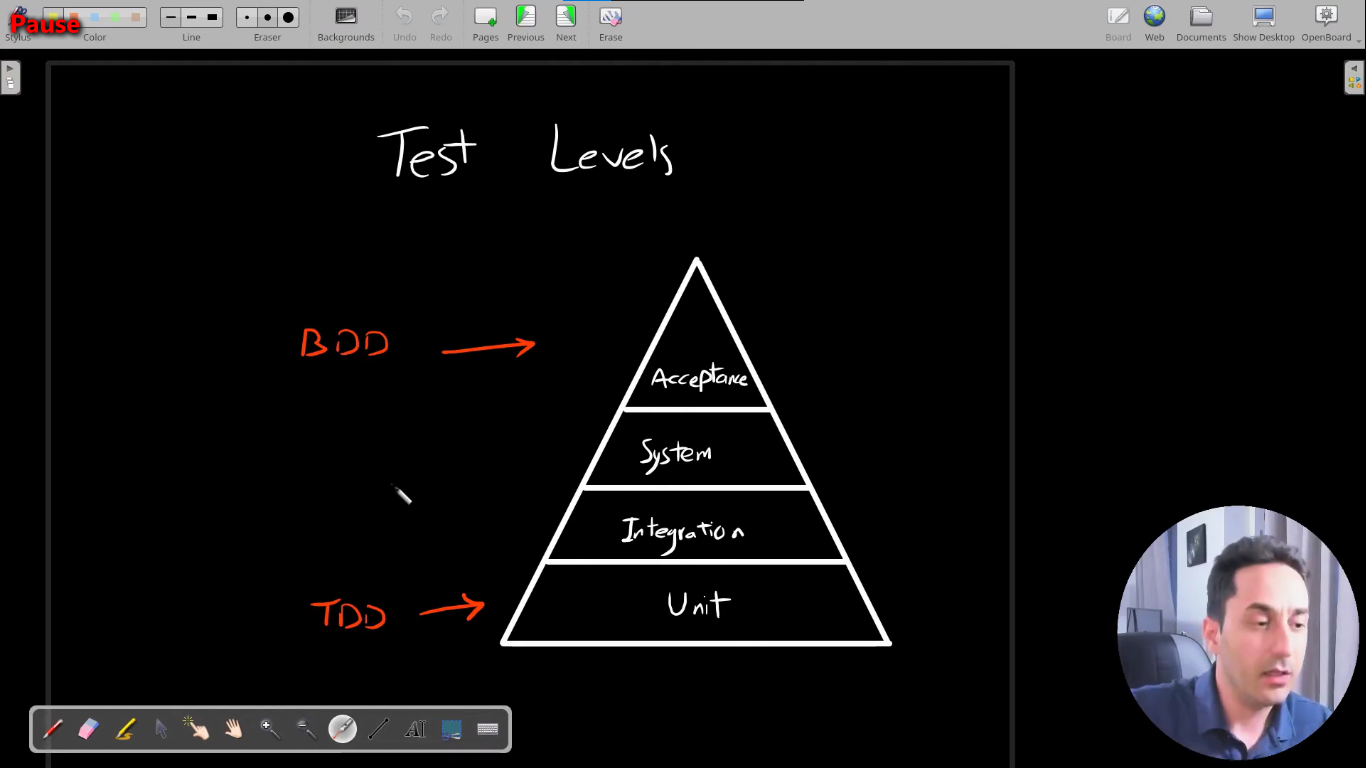 Pause
Stylus Color Line Eraser Backgrounds Undo Redo Pages Previous Next Erase Board Web Documents Show Desktop OpenBoard
Test Levels
BDD
Acceptance
System
Integration
TDD
Unit
AI